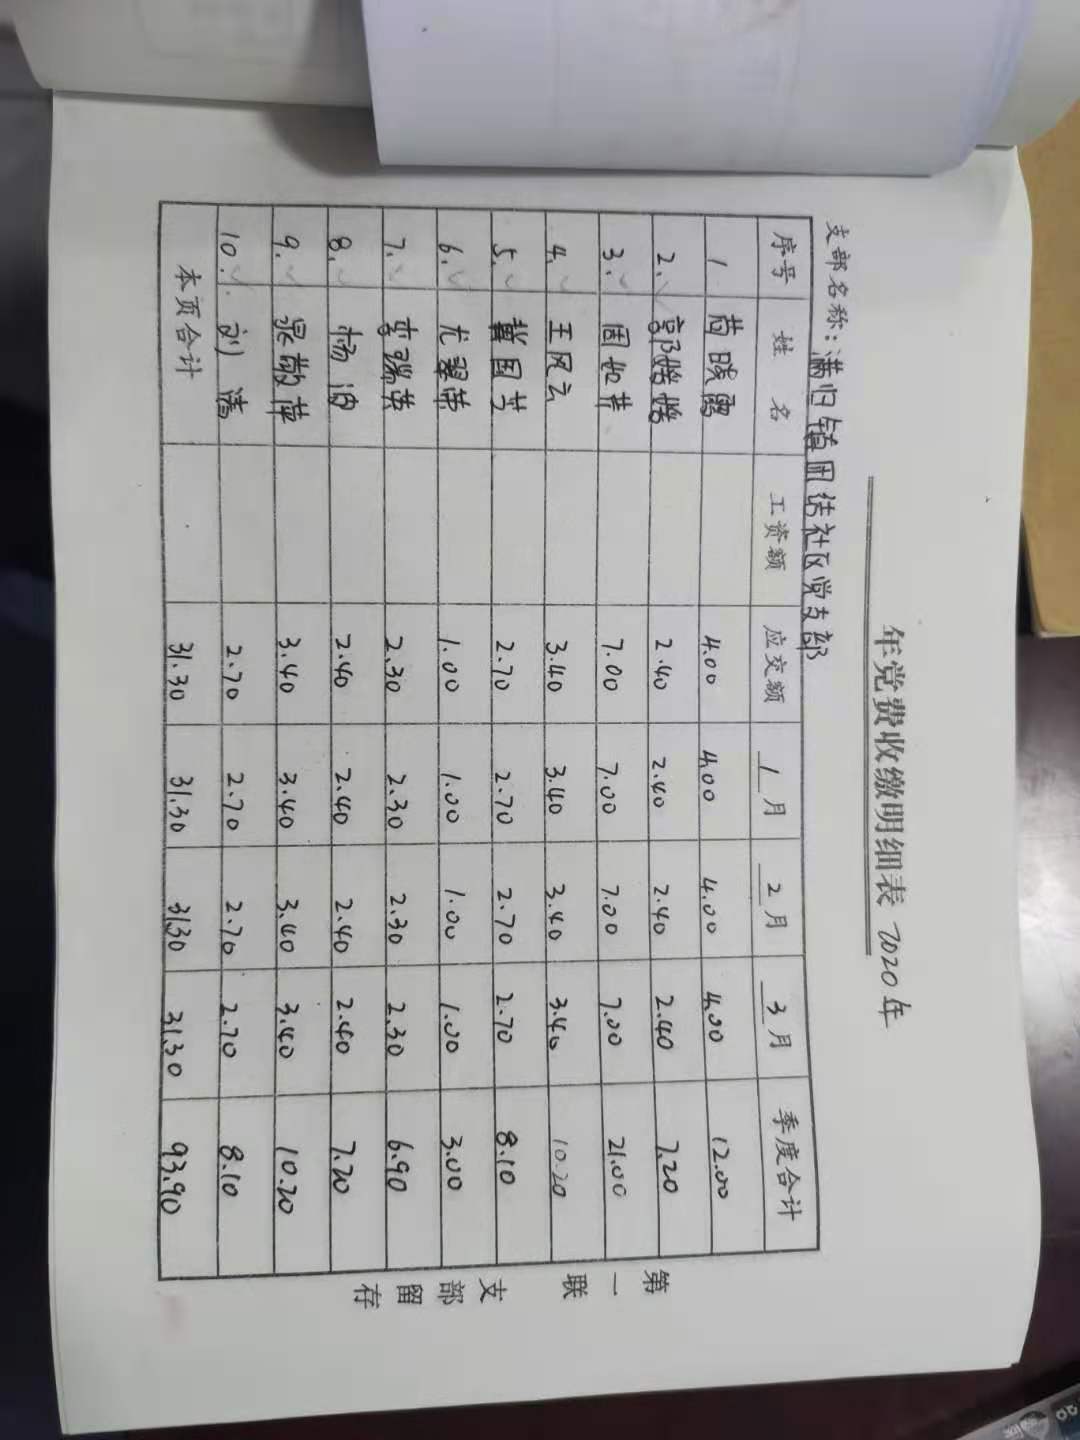 年党费收缴明细表 2020年
支部名称：满归镇团结社区党支部
序号 姓名 工资额 应交额 1月 2月 3月 季度合计
1 晓雪 4.00 4.00 4.00 4.00 12.00
2. 郭婷婷 2.40 2.40 2.40 2.40 7.20
3. 周如苹 7.00 7.00 7.00 7.00 21.00
4. 王凤云 3.40 3.40 3.40 3.40 10.20
5. 戴国芝 2.70 2.70 2.70 2.70 8.10
6. 尤翠荣 1.00 1.00 1.00 1.00 3.00
7. 李瑞英 2.30 2.30 2.30 2.30 6.90
8. 杨 2.40 2.40 2.40 2.40 7.20
9. 敬萍 3.40 3.40 3.40 3.40 10.20
10. 刘清 2.70 2.70 2.70 2.70 8.10
本页合计 31.30 31.30 31.30 31.30 93.90
第一联 支部留存